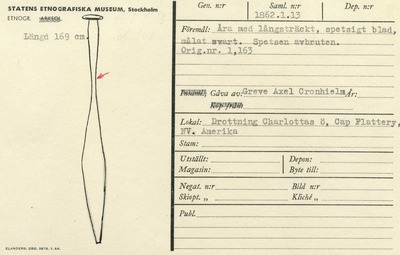 STATENS ETNOGRAFISKA MUSEUM, Stockholm
ETNOGR. ARKEOL.
Längd 169 cm.
ELANDERS, GBG. 5870. 1. 54.
Gen. n:r
Saml. n:r
Dep. n:r
1862.1.13
Föremål: Åra med långsträckt, spetsigt blad,
målat svart. Spetsen avbruten.
Orig.nr. 1,163
Gåva av: Greve Axel Cronhielm År:
Köp från
Lokal: Drottning Charlottas ö, Cap Flattery,
NV. Amerika
Stam:
Utställt:
Depon:
Magasin:
Byte till:
Negat. n:r
Bild n:r
Skiopt. „
Kliché „
Publ.